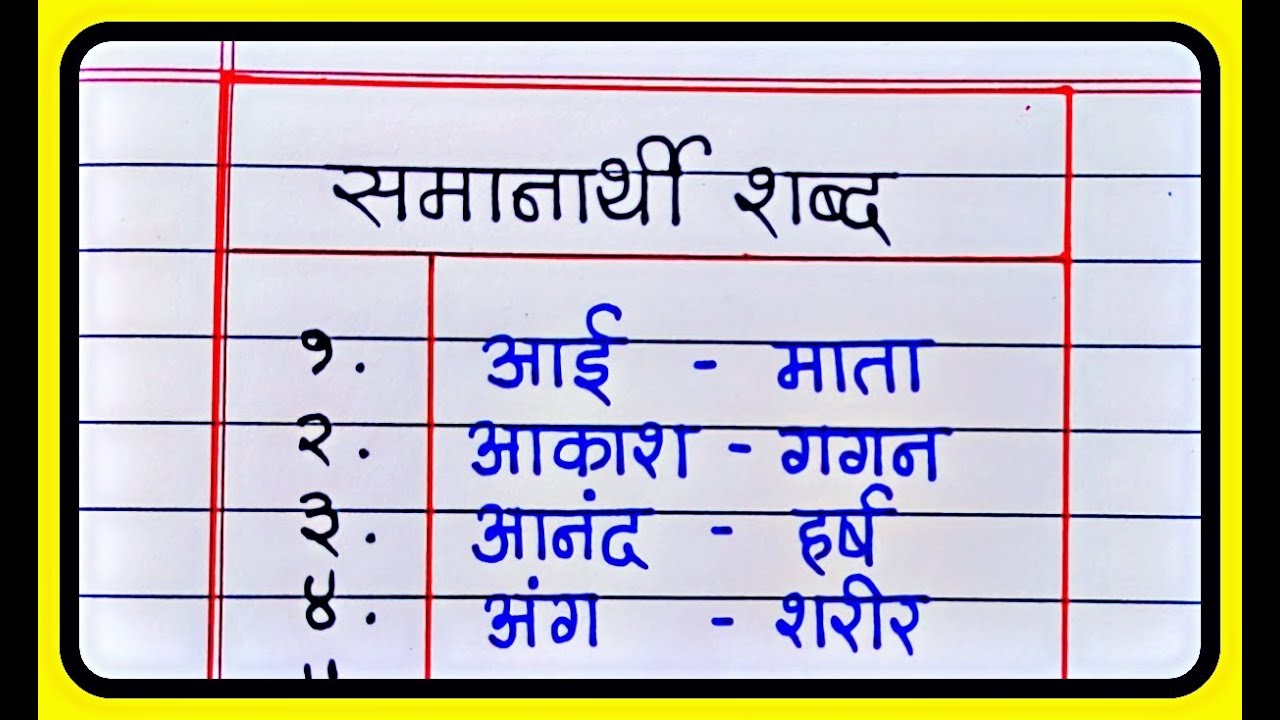 समानार्थी शब्द
१. आई - माता
२. आकाश - गगन
३. आनंद - हर्ष
४. अंग - शरीर